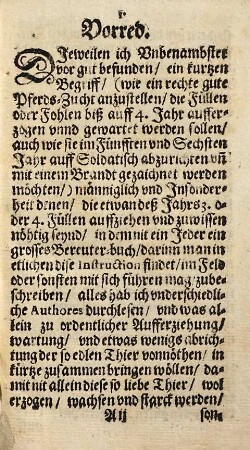 Vorred.
DJeweilen ich Vnbenambster
vor gut befunden / ein kurtzen
Begriff / (wie ein rechte gute
Pferds-Zucht anzustellen / die Füllen
oder Fohlen biß auff 4. Jahr aufferzogen
vnnd gewartet werden sollen /
auch wie sie im Fünfften vnd Sechsten
Jahr auff Soldatisch abzurichten vñ
mit einem Brandt gezaichnet werden
möchten /) männiglich vnd Insonderheit
denen / die etwan deß Jahrs 3. oder
4. Füllen auffziehen vnd zuwissen
nöhtig seynd / in dem nit ein Jeder ein
grosses Bereuter-buch / darinn man in
etlichen dise Instruction findet / im Feld
oder sonsten mit sich führen mag / zubeschreiben
/ alles hab ich vnderschiedliche
Authores durchlesen / vnd was allein
zu ordentlicher Aufferziehung /
wartung / vnd etwas wenigs abrichtung
der so edlen Thier vonnöthen / in
kürtze zusammen bringen wöllen / damit
nit allein diese so liebe Thier / wol
erzogen / wachsen vnd starck werden /
A ij son-